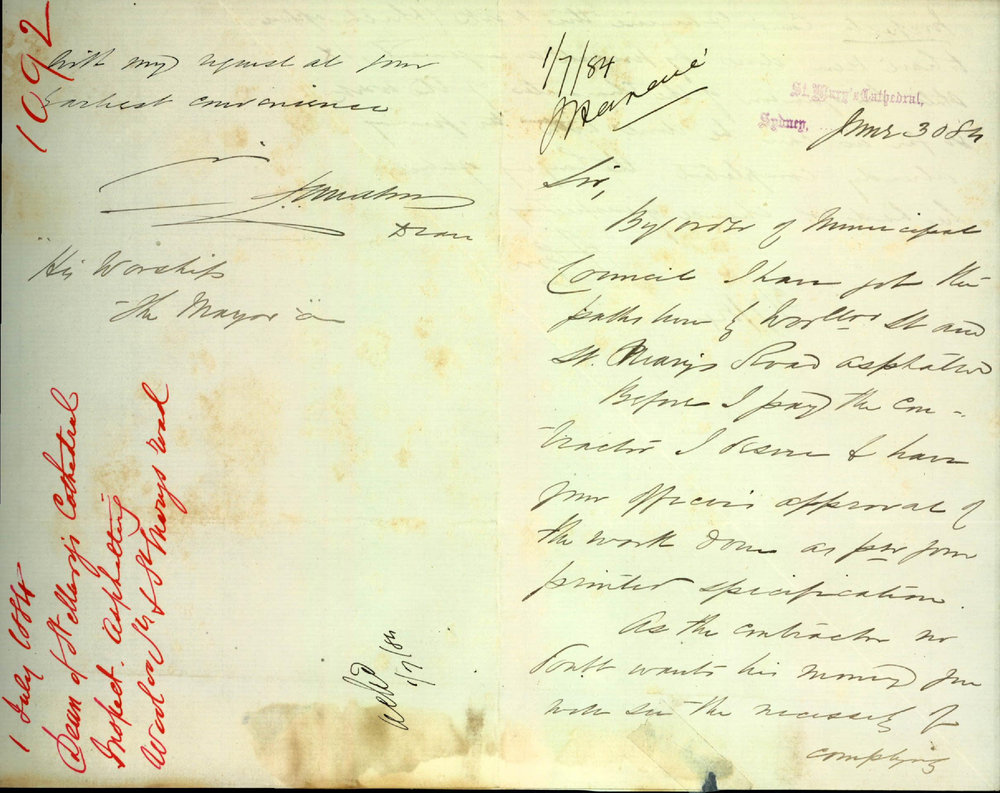 1/7/84
St. Mary's Cathedral,
Sydney, June 30 84
Sir,
By order of Municipal
Council I have got the
paths here by Woolloo St and
St. Mary's Road asphalted
Before I pay the con-
tractor I desire to have
your officers approval of
the work done as per your
printed specification.
As the contractor no
doubt wants his money you
will see the necessity of
complying
with my request at your
earliest convenience
Dean
His Worship
The Mayor
1092
1 July 1884
Dean of St Mary's Cathedral
Inspect. Asphalting
St & St Marys road
1/7/84